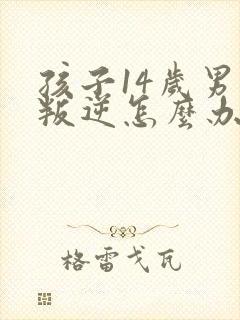 孩子14歲男
叛逆怎麼办
格雷戈瓦